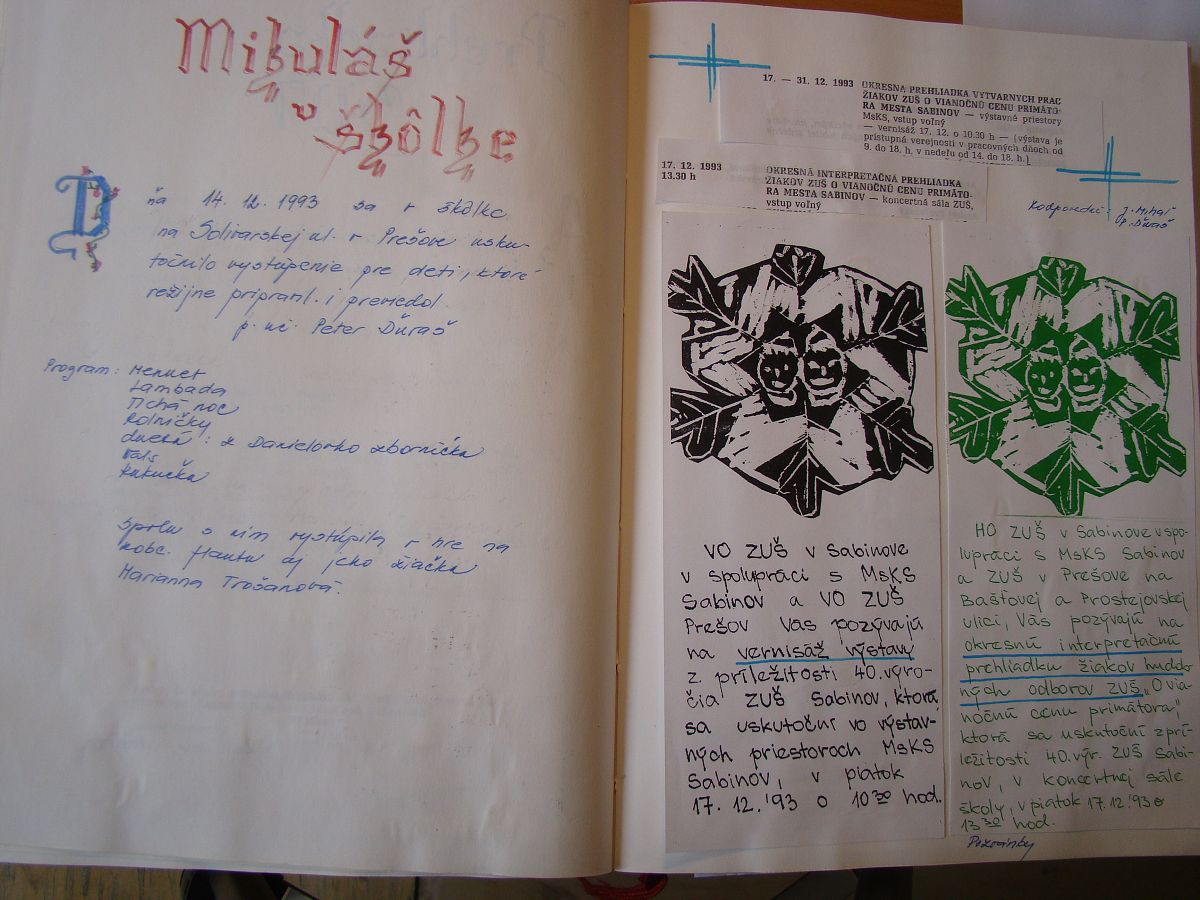 Mikuláš
v škôlke
Dňa 14. 12. 1993 sa v škôlke
na Solivarskej ul. v Prešove usku-
točnilo vystúpenie pre deti, ktoré
režijne pripravil i previedol
p. uč. Peter Ďuraš
Program: Menuet
Lambada
Tichá noc
Rolničky
dueta: z Danielovho zborníčka
Vals
Kukučka
Spolu s ním vystúpila v hre na
zobc. flautu aj jeho žiačka
Marianna Trošanová.
17. — 31. 12. 1993 OKRESNÁ PREHLIADKA VÝTVARNÝCH PRÁC
ŽIAKOV ZUŠ O VIANOČNÚ CENU PRIMÁTO-
RA MESTA SABINOV — výstavné priestory
MsKS, vstup voľný
— vernisáž 17. 12. o 10.30 h — (výstava je
prístupná verejnosti v pracovných dňoch od
9. do 18. h, v nedeľu od 14. do 18. h.)
17. 12. 1993 OKRESNÁ INTERPRETAČNÁ PREHLIADKA
13.30 h ŽIAKOV ZUŠ O VIANOČNÚ CENU PRIMÁTO-
RA MESTA SABINOV — koncertná sála ZUŠ,
vstup voľný
Zodpovední J. Mihaľ
p. Ďuraš
VO ZUŠ v Sabinove
v spolupráci s MsKS
Sabinov a VO ZUŠ
Prešov Vás pozývajú
na vernisáž výstavy
z príležitosti 40. výro-
čia ZUŠ Sabinov, ktorá
sa uskutoční vo výstav-
ných priestoroch MsKS
Sabinov, v piatok
17. 12. '93 o 10 30 hod.
HO ZUŠ v Sabinove v spo-
lupráci s MsKS Sabinov
a ZUŠ v Prešove na
Bašťovej a Prostejovskej
ulici, Vás pozývajú na
okresnú interpretačnú
prehliadku žiakov hudob-
ných odborov ZUŠ „O via-
nočnú cenu primátora",
ktorá sa uskutoční z prí-
ležitosti 40. výr. ZUŠ Sabi-
nov, v koncertnej sále
školy, v piatok 17. 12. '93 o
13 30 hod.
Pozvánky